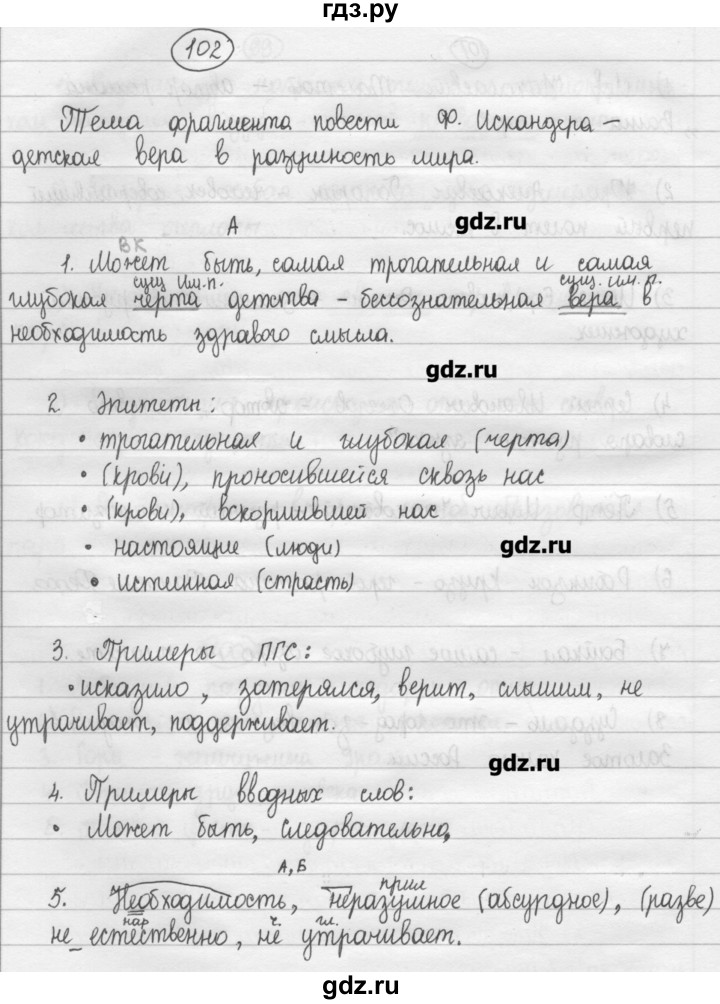 гдз.ру
102
Тема фрагмента повести Ф. Искандера –
детская вера в разумность мира.
А
gdz.ru
ВК
1. Может быть, самая трогательная и самая
сущ. им.п. сущ. им. п.
глубокая черта детства – бессознательная вера в
необходимость здравого смысла.
gdz.ru
2 Эпитеты:
• трогательная и глубокая (черта)
• (крови), проносившейся сквозь нас
• (крови), вскормившей нас
• настоящие (люди)
gdz.ru
• истинная (страсть)
3. Примеры ПГС:
• исказило, затерялся, верит, слышим, не
утрачивает, поддерживает.
gdz.ru
4. Примеры вводных слов:
• Может быть, следовательно,
А, Б
прил
5. Необходимость, неразумное (абсурдное), (разве)
нар ч. гл.
не естественно, не утрачивает.
gdz.ru